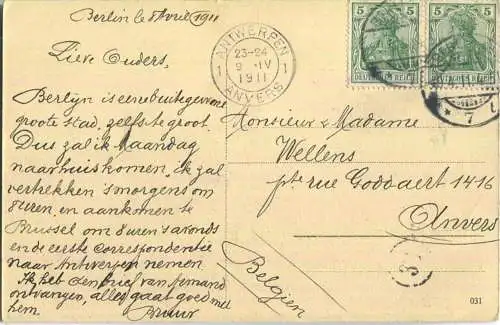 Berlin le 8 Avril 1911
Lieve Ouders,
Berlyn is eene buitegewone
groote stad, zelfs te groot.
Dus zal ik Maandag
naar huis komen, ik zal
vertrekken 's morgens om
8 uren, en aankomen te
Brussel om 8 uren 's avonds
en de eerste correspondentie
naar Antwerpen nemen.
Ik heb den brief van Armand
ontvangen, alles gaat goed met
hem.
ANTWERPEN
1 23-24 1
9 -IV
1911
ANVERS
5 5 5 5
DEUTSCHES REICH DEUTSCHES REICH
7
Monsieur & Madame
Wellens
pte rue Goddaert 14 16
Anvers
Belgien
031